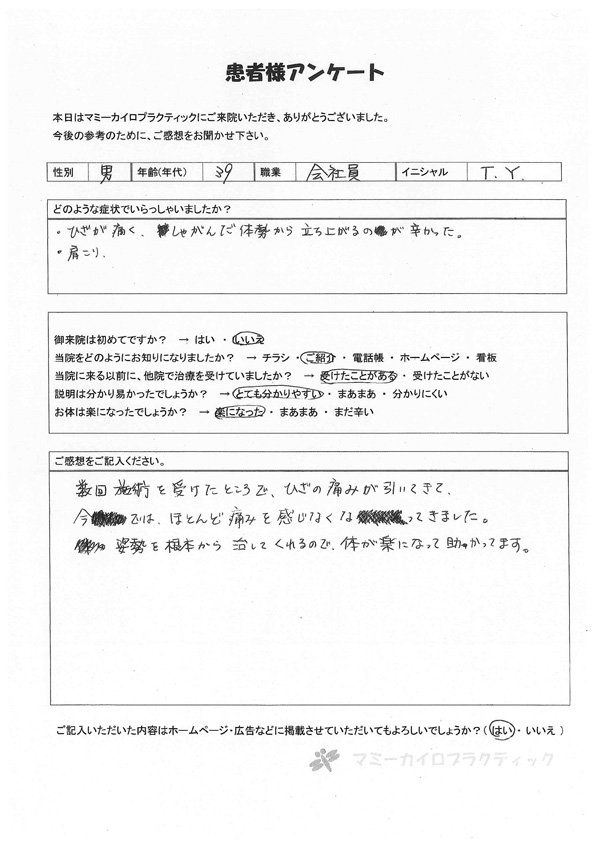 患者様アンケート
本日はマミーカイロプラクティックにご来院いただき、ありがとうございました。
今後の参考のために、ご感想をお聞かせ下さい。
性別 男 年齢(年代) 39 職業 会社員 イニシャル T.Y.
どのような症状でいらっしゃいましたか?
・ひざが痛く、しゃがんだ体勢から立ち上がるのが辛かった。
・肩こり.
御来院は初めてですか? → はい ・ いいえ
当院をどのようにお知りになりましたか? → チラシ ・ ご紹介 ・ 電話帳 ・ ホームページ ・ 看板
当院に来る以前に、他院で治療を受けていましたか? → 受けたことがある ・ 受けたことがない
説明は分かり易かったでしょうか? → とても分かりやすい ・ まあまあ ・ 分かりにくい
お体は楽になったでしょうか? → 楽になった ・ まあまあ ・ まだ辛い
ご感想をご記入ください。
数回施術を受けたところで、ひざの痛みが引いてきて、
今では、ほとんど痛みを感じなくなってきました。
姿勢を根本から治してくれるので、体が楽になって助かってます。
ご記入いただいた内容はホームページ・広告などに掲載させていただいてもよろしいでしょうか?( はい ・ いいえ )
マミーカイロプラクティック